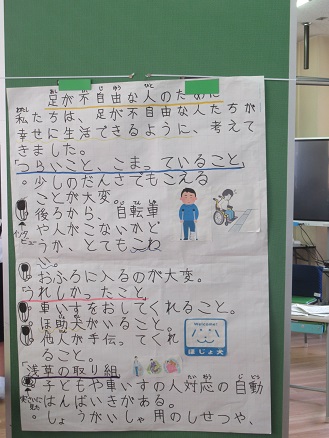 足が不自由な人のために
私たちは、足が不自由な人たちが
幸せに生活できるように、考えて
きました。
「つらいこと、こまっていること」
。少しのだんさでもこえる
ことが大変。
。後ろから、自転車
や人がこないかど
うか、とてもこわ
い。
インタビュー
。おふろに入るのが大変。
「うれしかったこと」
。車いすをおしてくれること。
。ほ助犬がいること。
。他人が手伝ってくれ
ること。
Welcome!
ほじょ犬
「浅草の取り組
。子どもや車いすの人対応の自動
はんばいきがある。
。しょうがいしゃ用のしせつや、